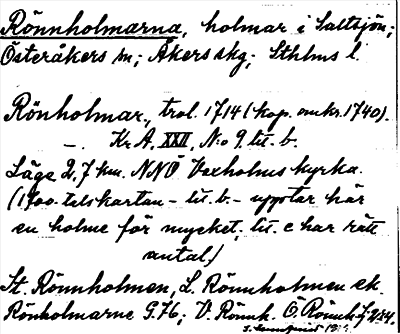 Rönnholmarna, holmar i Saltsjön;
Österåkers sn; Åkers skg; Sthlms l.
Rönholmar, trol. 1714 (kop. omkr. 1740).
—. Kr A. XXII, N:o 9 lit. b.
Läge 2,7 km. NNÖ Vaxholms kyrka.
(1700-talskartan – lit. b – upptar här
en holme för mycket; lit. c har rätt
antal.)
St. Rönnholmen, L. Rönnholmen ek.
Rönholmarne G.76; V. Rönnh. Ö. Rönnh.